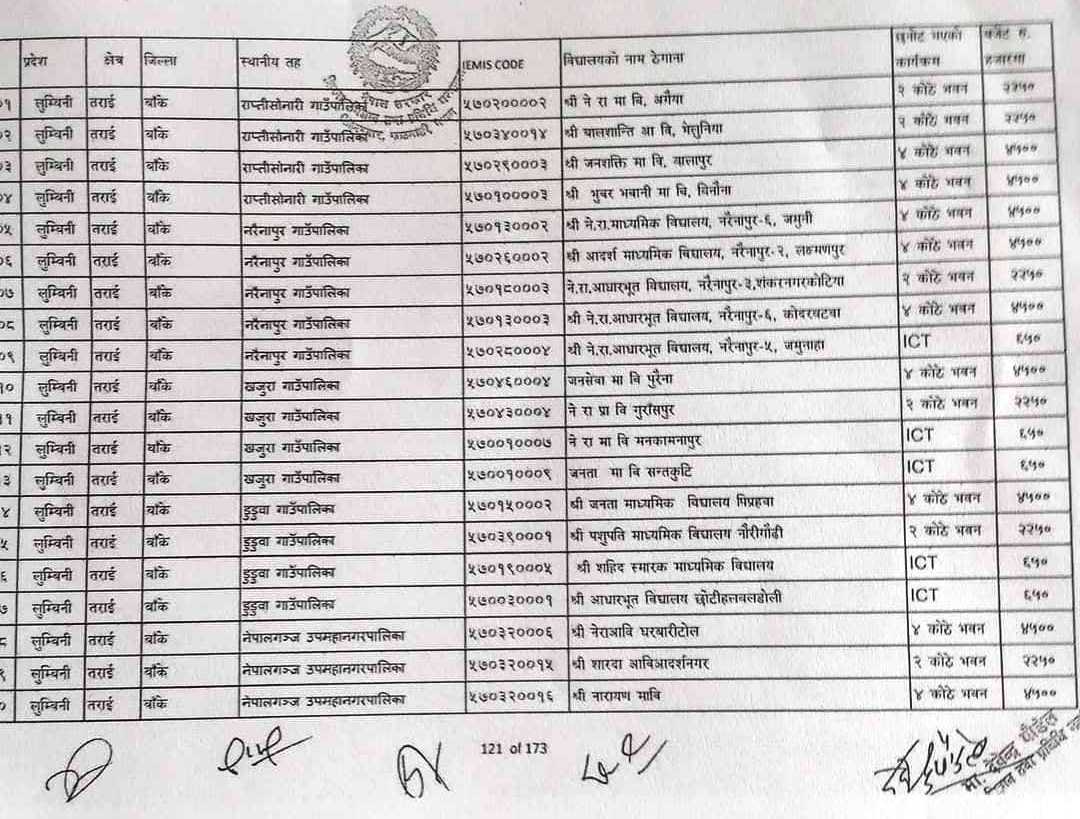 प्रदेश क्षेत्र जिल्ला स्थानीय तह IEMIS CODE विद्यालयको नाम ठेगाना छनौट भएको कार्यक्रम बजेट रु. हजारमा
लुम्विनी तराई बाँके राप्तीसोनारी गाउँपालिका ५७०२००००२ श्री ने रा मा बि, अगैया २ कोठे भवन २२५०
लुम्विनी तराई बाँके राप्तीसोनारी गाउँपालिका ५७०३४००१४ श्री बालशान्ति आ बि, भेलुनिया २ कोठे भवन २२५०
लुम्विनी तराई बाँके राप्तीसोनारी गाउँपालिका ५७०२९०००३ श्री जनशक्ति मा बि, बालापुर ४ कोठे भवन ४५००
लुम्विनी तराई बाँके राप्तीसोनारी गाउँपालिका ५७०१००००३ श्री भुवर भवानी मा बि, बिनौना ४ कोठे भवन ४५००
लुम्विनी तराई बाँके नरैनापुर गाउँपालिका ५७०१३०००२ श्री ने.रा.माध्यमिक विद्यालय, नरैनापुर-६, जमुनी ४ कोठे भवन ४५००
लुम्विनी तराई बाँके नरैनापुर गाउँपालिका ५७०२६०००२ श्री आदर्श माध्यमिक विद्यालय, नरैनापुर-२, लक्ष्मणपुर ४ कोठे भवन ४५००
लुम्विनी तराई बाँके नरैनापुर गाउँपालिका ५७०१८०००३ ने.रा.आधारभूत विद्यालय, नरैनापुर-३,शंकरनगरकोटिया २ कोठे भवन २२५०
लुम्विनी तराई बाँके नरैनापुर गाउँपालिका ५७०१३०००३ श्री ने.रा.आधारभूत विद्यालय, नरैनापुर-६, कोदरवटवा ४ कोठे भवन ४५००
लुम्विनी तराई बाँके नरैनापुर गाउँपालिका ५७०२८०००४ श्री ने.रा.आधारभूत विद्यालय, नरैनापुर-५, जमुनाहा ICT ६५०
लुम्विनी तराई बाँके खजुरा गाउँपालिका ५७०४६०००४ जनसेवा मा बि पुरैना ४ कोठे भवन ४५००
लुम्विनी तराई बाँके खजुरा गाउँपालिका ५७०४३०००४ ने रा प्रा वि गुराँसपुर २ कोठे भवन २२५०
लुम्विनी तराई बाँके खजुरा गाउँपालिका ५७००१०००७ ने रा मा वि मनकामनापुर ICT ६५०
लुम्विनी तराई बाँके खजुरा गाउँपालिका ५७००१०००९ जनता मा बि सन्तकुटि ICT ६५०
लुम्विनी तराई बाँके डुडुवा गाउँपालिका ५७०१५०००२ श्री जनता माध्यमिक विद्यालय पिप्रहवा ४ कोठे भवन ४५००
लुम्विनी तराई बाँके डुडुवा गाउँपालिका ५७०३९०००१ श्री पशुपति माध्यमिक विद्यालय नौरीगौढी २ कोठे भवन २२५०
लुम्विनी तराई बाँके डुडुवा गाउँपालिका ५७०१९०००५ श्री शहिद स्मारक माध्यमिक विद्यालय ICT ६५०
लुम्विनी तराई बाँके डुडुवा गाउँपालिका ५७००३०००१ श्री आधारभूत विद्यालय छोटीहलवलडोली ICT ६५०
लुम्विनी तराई बाँके नेपालगञ्ज उपमहानगरपालिका ५७०३२०००६ श्री नेराआवि घरबारीटोल ४ कोठे भवन ४५००
लुम्विनी तराई बाँके नेपालगञ्ज उपमहानगरपालिका ५७०३२००१५ श्री शारदा आविआदर्शनगर २ कोठे भवन २२५०
लुम्विनी तराई बाँके नेपालगञ्ज उपमहानगरपालिका ५७०३२००१६ श्री नारायण मावि ४ कोठे भवन ४५००
121 of 173